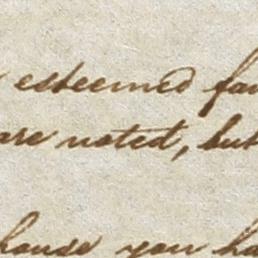 esteemed fav
are noted, but
house you ha